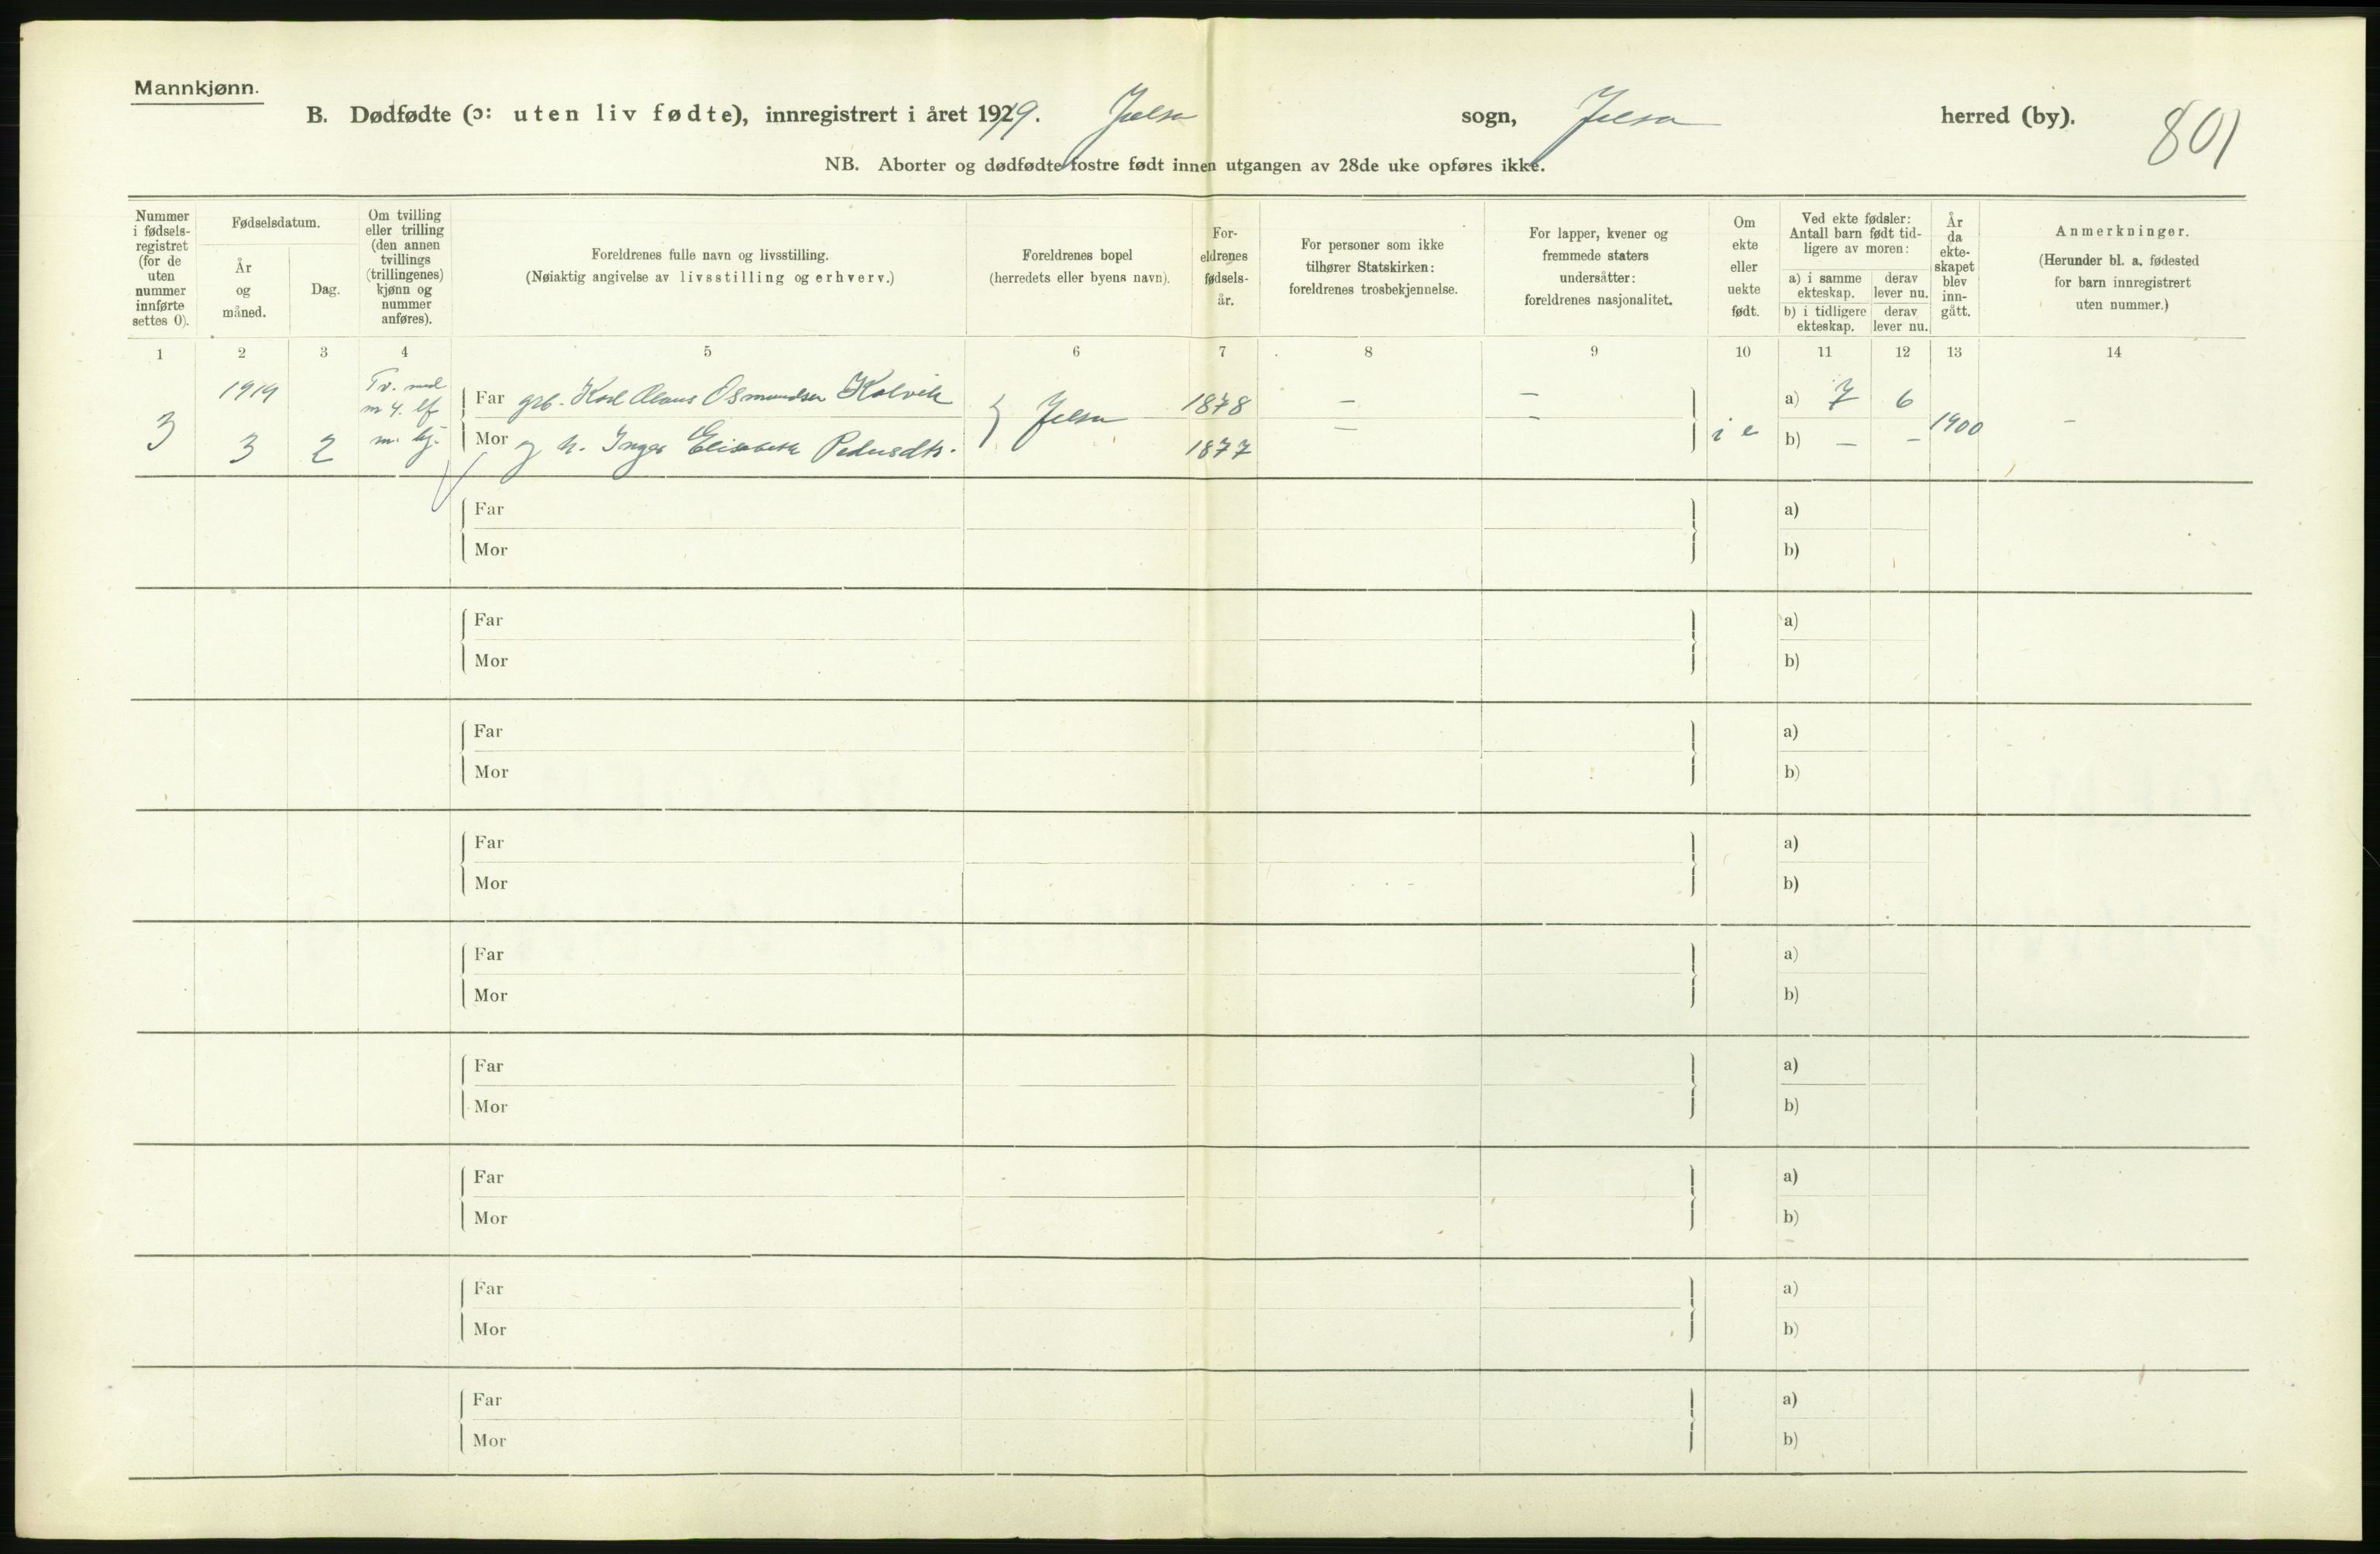 Mannkjønn.
B. Dødfødte (ɔ: uten liv fødte), innregistrert i året 1919. Jelsa sogn, Jelsa herred (by).
801
NB. Aborter og dødfødte fostre født innen utgangen av 28de uke opføres ikke.
Nummer
i fødsels-
registret
(for de
uten
nummer
innførte
settes 0).
Fødselsdatum.
År
og
måned.
Dag.
Om tvilling
eller trilling
(den annen
tvillings
(trillingenes)
kjønn og
nummer
anføres).
Foreldrenes fulle navn og livsstilling.
(Nøiaktig angivelse av livsstilling og erhverv.)
Foreldrenes bopel
(herredets eller byens navn).
For-
eldrenes
fødsels-
år.
For personer som ikke
tilhører Statskirken:
foreldrenes trosbekjennelse.
For lapper, kvener og
fremmede staters
undersåtter:
foreldrenes nasjonalitet.
Om
ekte
eller
uekte
født.
Ved ekte fødsler:
Antall barn født tid-
ligere av moren:
a) i samme
ekteskap.
derav
lever nu.
b) i tidligere
ekteskap.
derav
lever nu.
År
da
ekte-
skapet
blev
inn-
gått.
Anmerkninger.
(Herunder bl. a. fødested
for barn innregistrert
uten nummer.)
1 2 3 4 5 6 7 8 9 10 11 12 13 14
3
1919
3 2
Tv. med
m 4. lf
m. kj.
Far grb. Karl Olaus Osmundsen Kolvik
Mor og h. Inger Elisabeth Pedersdtr.
Jelsa
1878
1877
—
—
—
—
i e
a) 7 6
b) — —
1900
—
Far a)
Mor b)
Far a)
Mor b)
Far a)
Mor b)
Far a)
Mor b)
Far a)
Mor b)
Far a)
Mor b)
Far a)
Mor b)
Far a)
Mor b)
Far a)
Mor b)